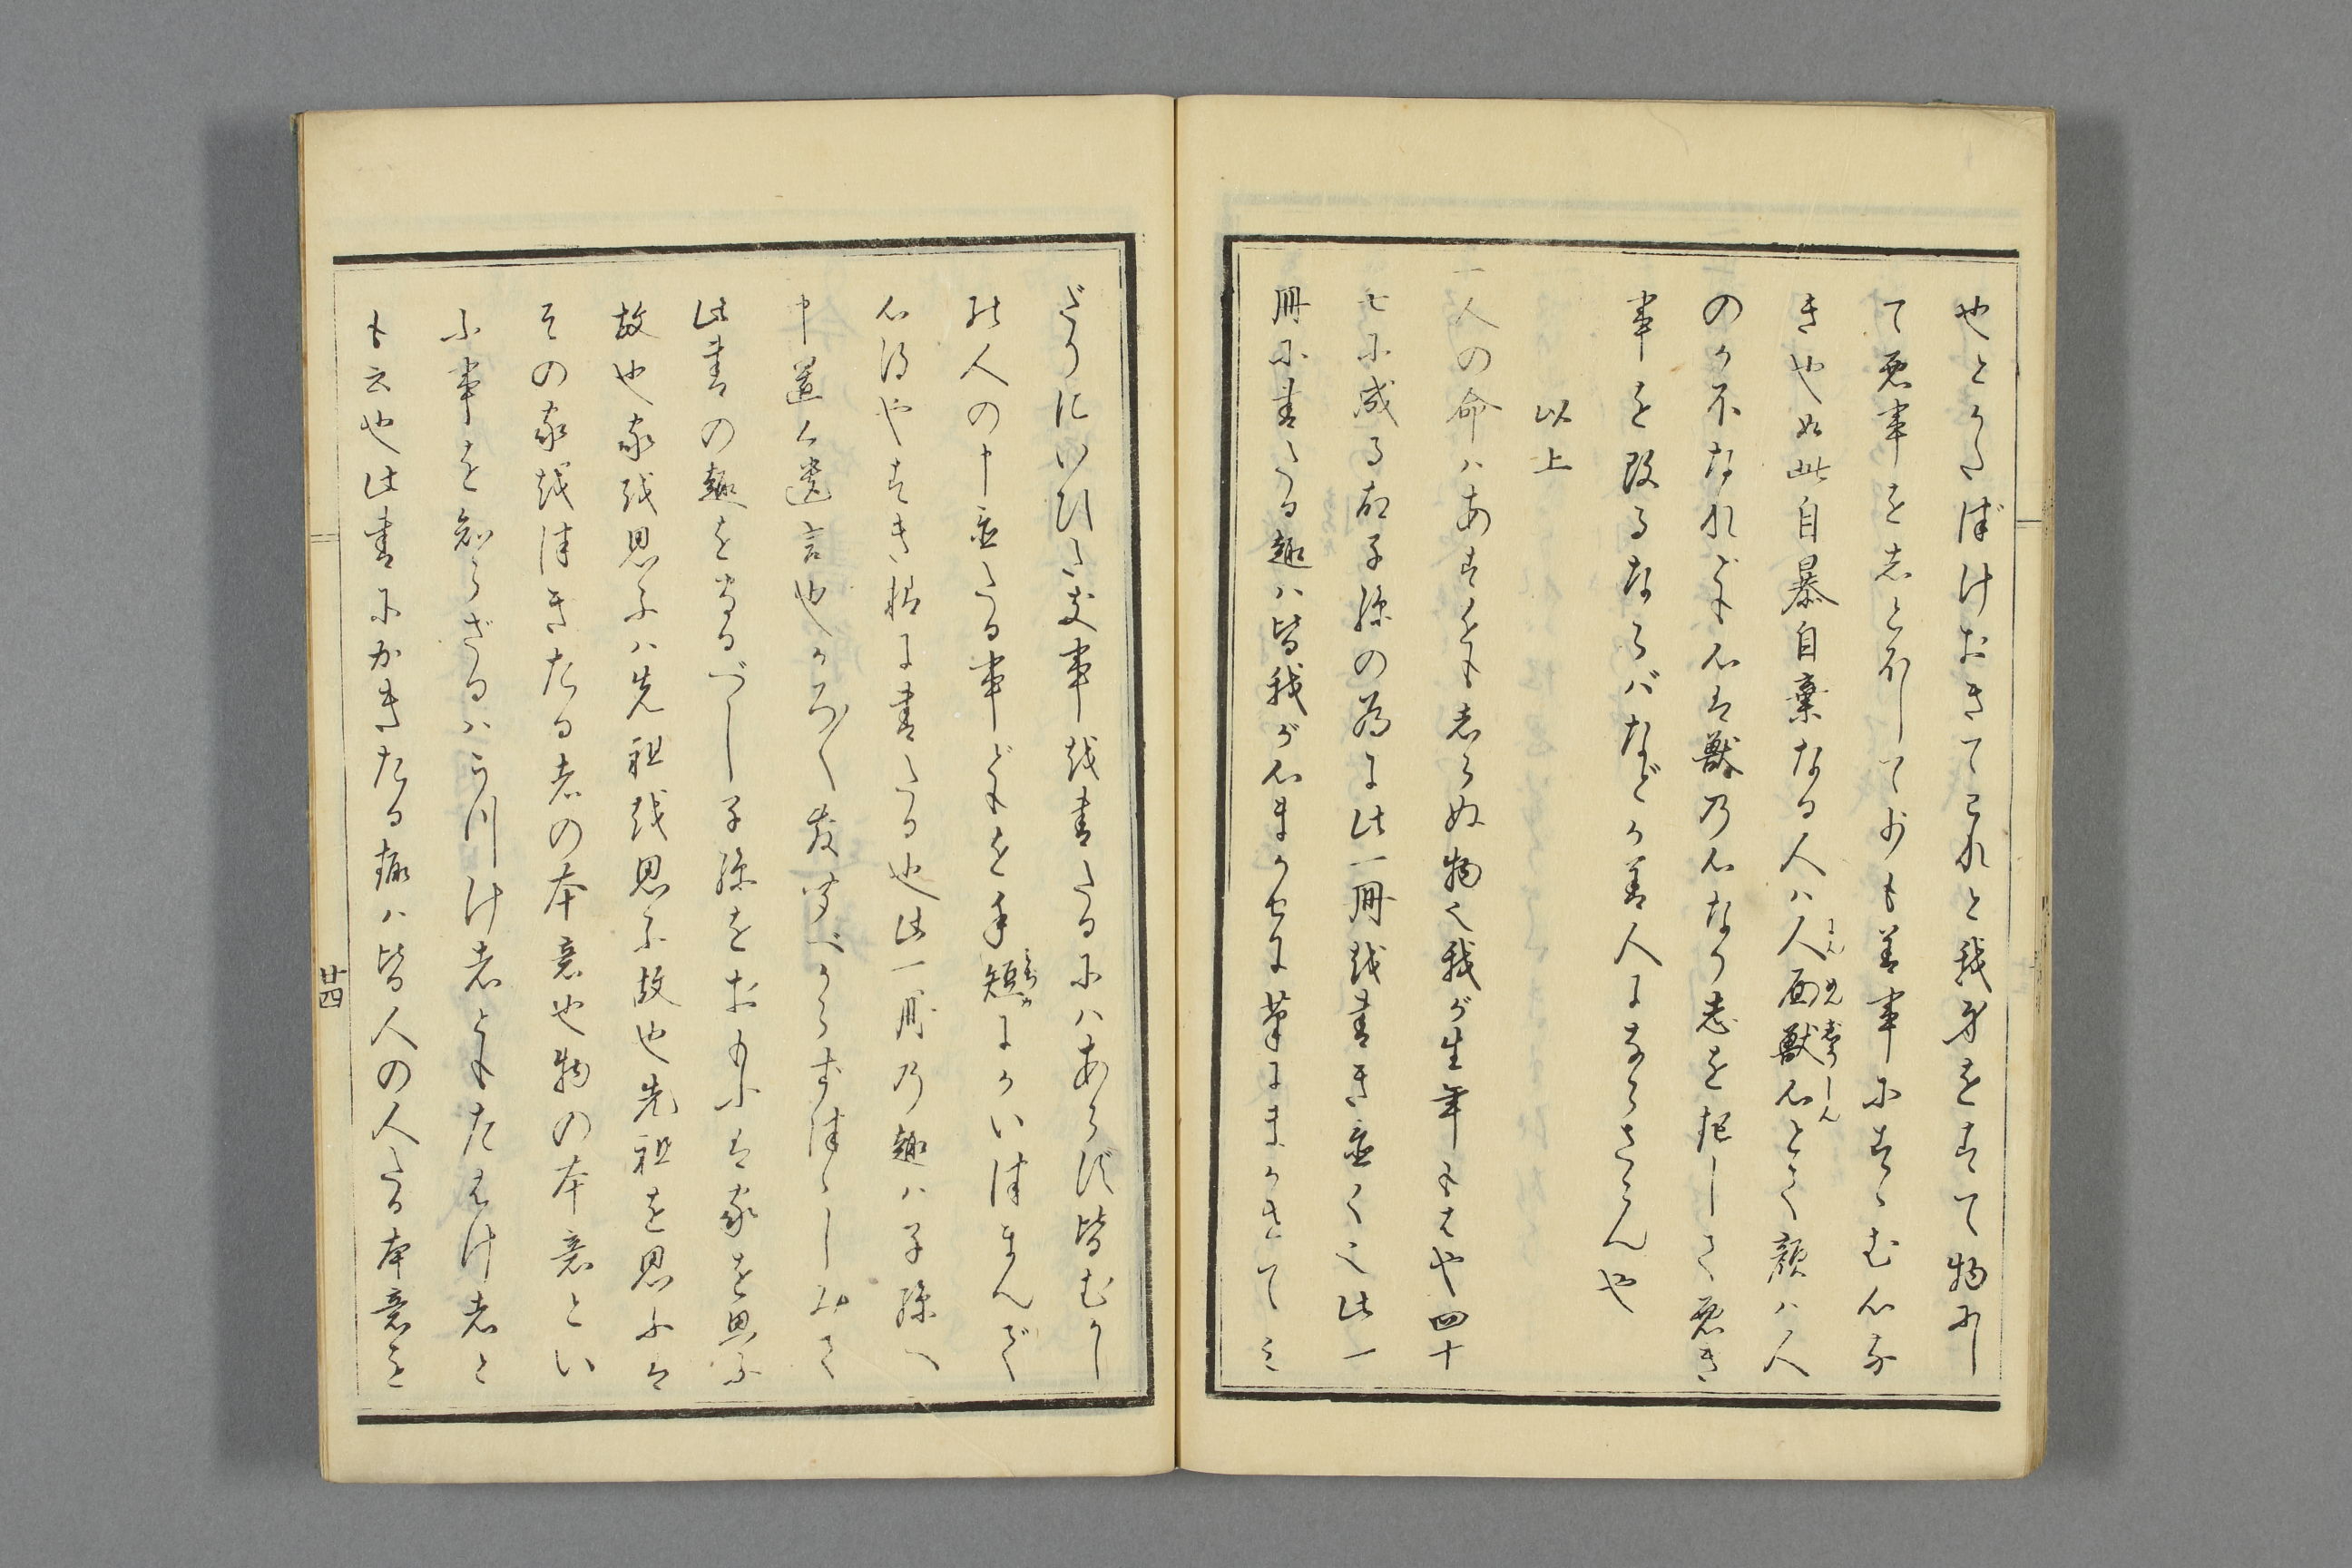 也とかたづけおきて己れと我身をすて物にし
て悪事を志と〆して少も善事にすゝむ心な
きや如此自暴自棄なる人ハ人面獣心とて顔ハ人
のかたなれども心は獣の心なり志を起して悪き
事を改るならバなどか善人にならさらんや
以上
一人の命ハあすをも志らぬ物也我が生年もはや四十
七に成る故子孫の為に此一冊を書き置く也此一
冊に書たる趣ハ皆我が心まかせに筆にまかせてみ
だりにいひた文事を書たるにハあらず皆むかし
の人の申置たる事どもを手短にかいつまんで
心得やすき様に書たる也此一冊の趣ハ子孫へ
申置く遺言也かろ〴〵敷夢べからずつゝしみて
此書の趣を守るべし子孫をおもふは家を思ふ
故也家を思ふハ先祖を思ふ故也先祖を思ふは
その家をつぎたる者の本意也物の本意とい
ふ事を知らざるハうつけ者ともたはけ者と
も云也此書にかきたる趣ハ皆人の人たる本意を
廿四